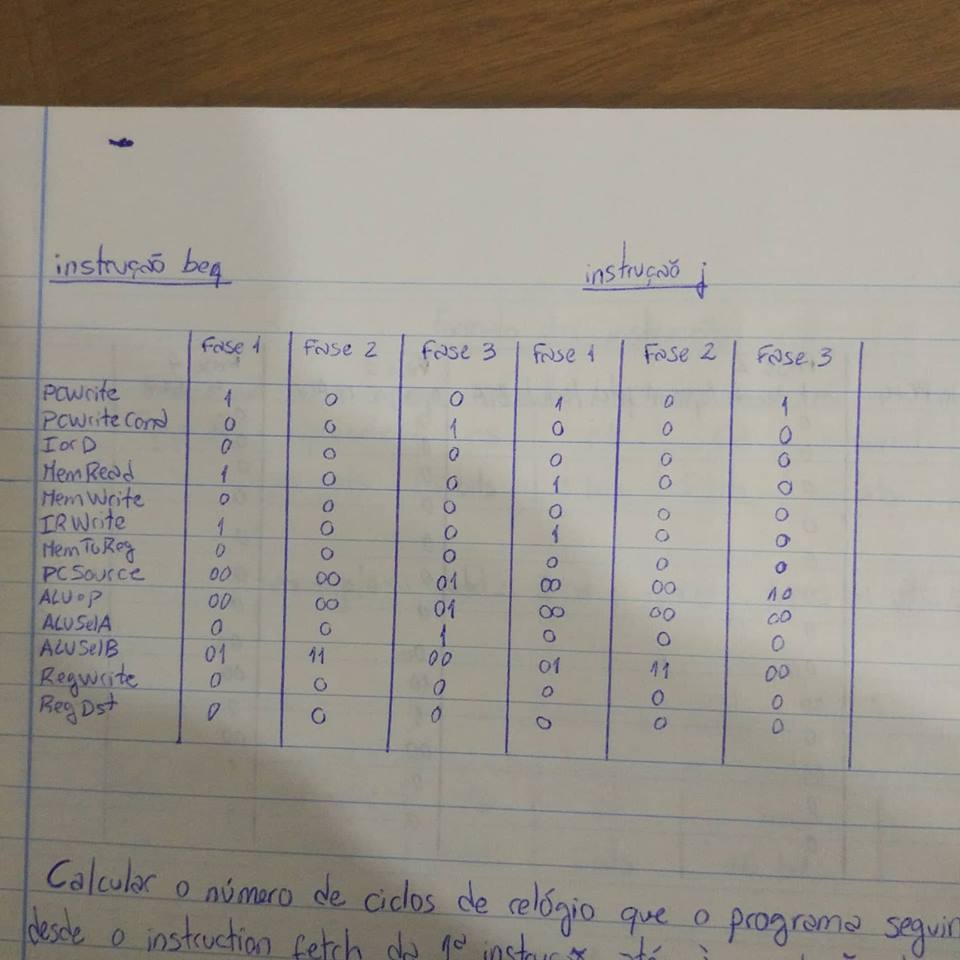 instrução beq instrução j
Fase 1 Fase 2 Fase 3 Fase 1 Fase 2 Fase 3
PCWrite 1 0 0 1 0 1
PCWriteCond 0 0 1 0 0 0
IorD 0 0 0 0 0 0
MemRead 1 0 0 1 0 0
MemWrite 0 0 0 0 0 0
IRWrite 1 0 0 1 0 0
MemToReg 0 0 0 0 0 0
PCSource 00 00 01 00 00 10
ALUOP 00 00 01 00 00 00
ALUSelA 0 0 1 0 0 0
ALUSelB 01 11 00 01 11 00
RegWrite 0 0 0 0 0 0
RegDst 0 0 0 0 0 0
Calcular o número de ciclos de relógio que o programa seguin
desde o instruction fetch da 1ª